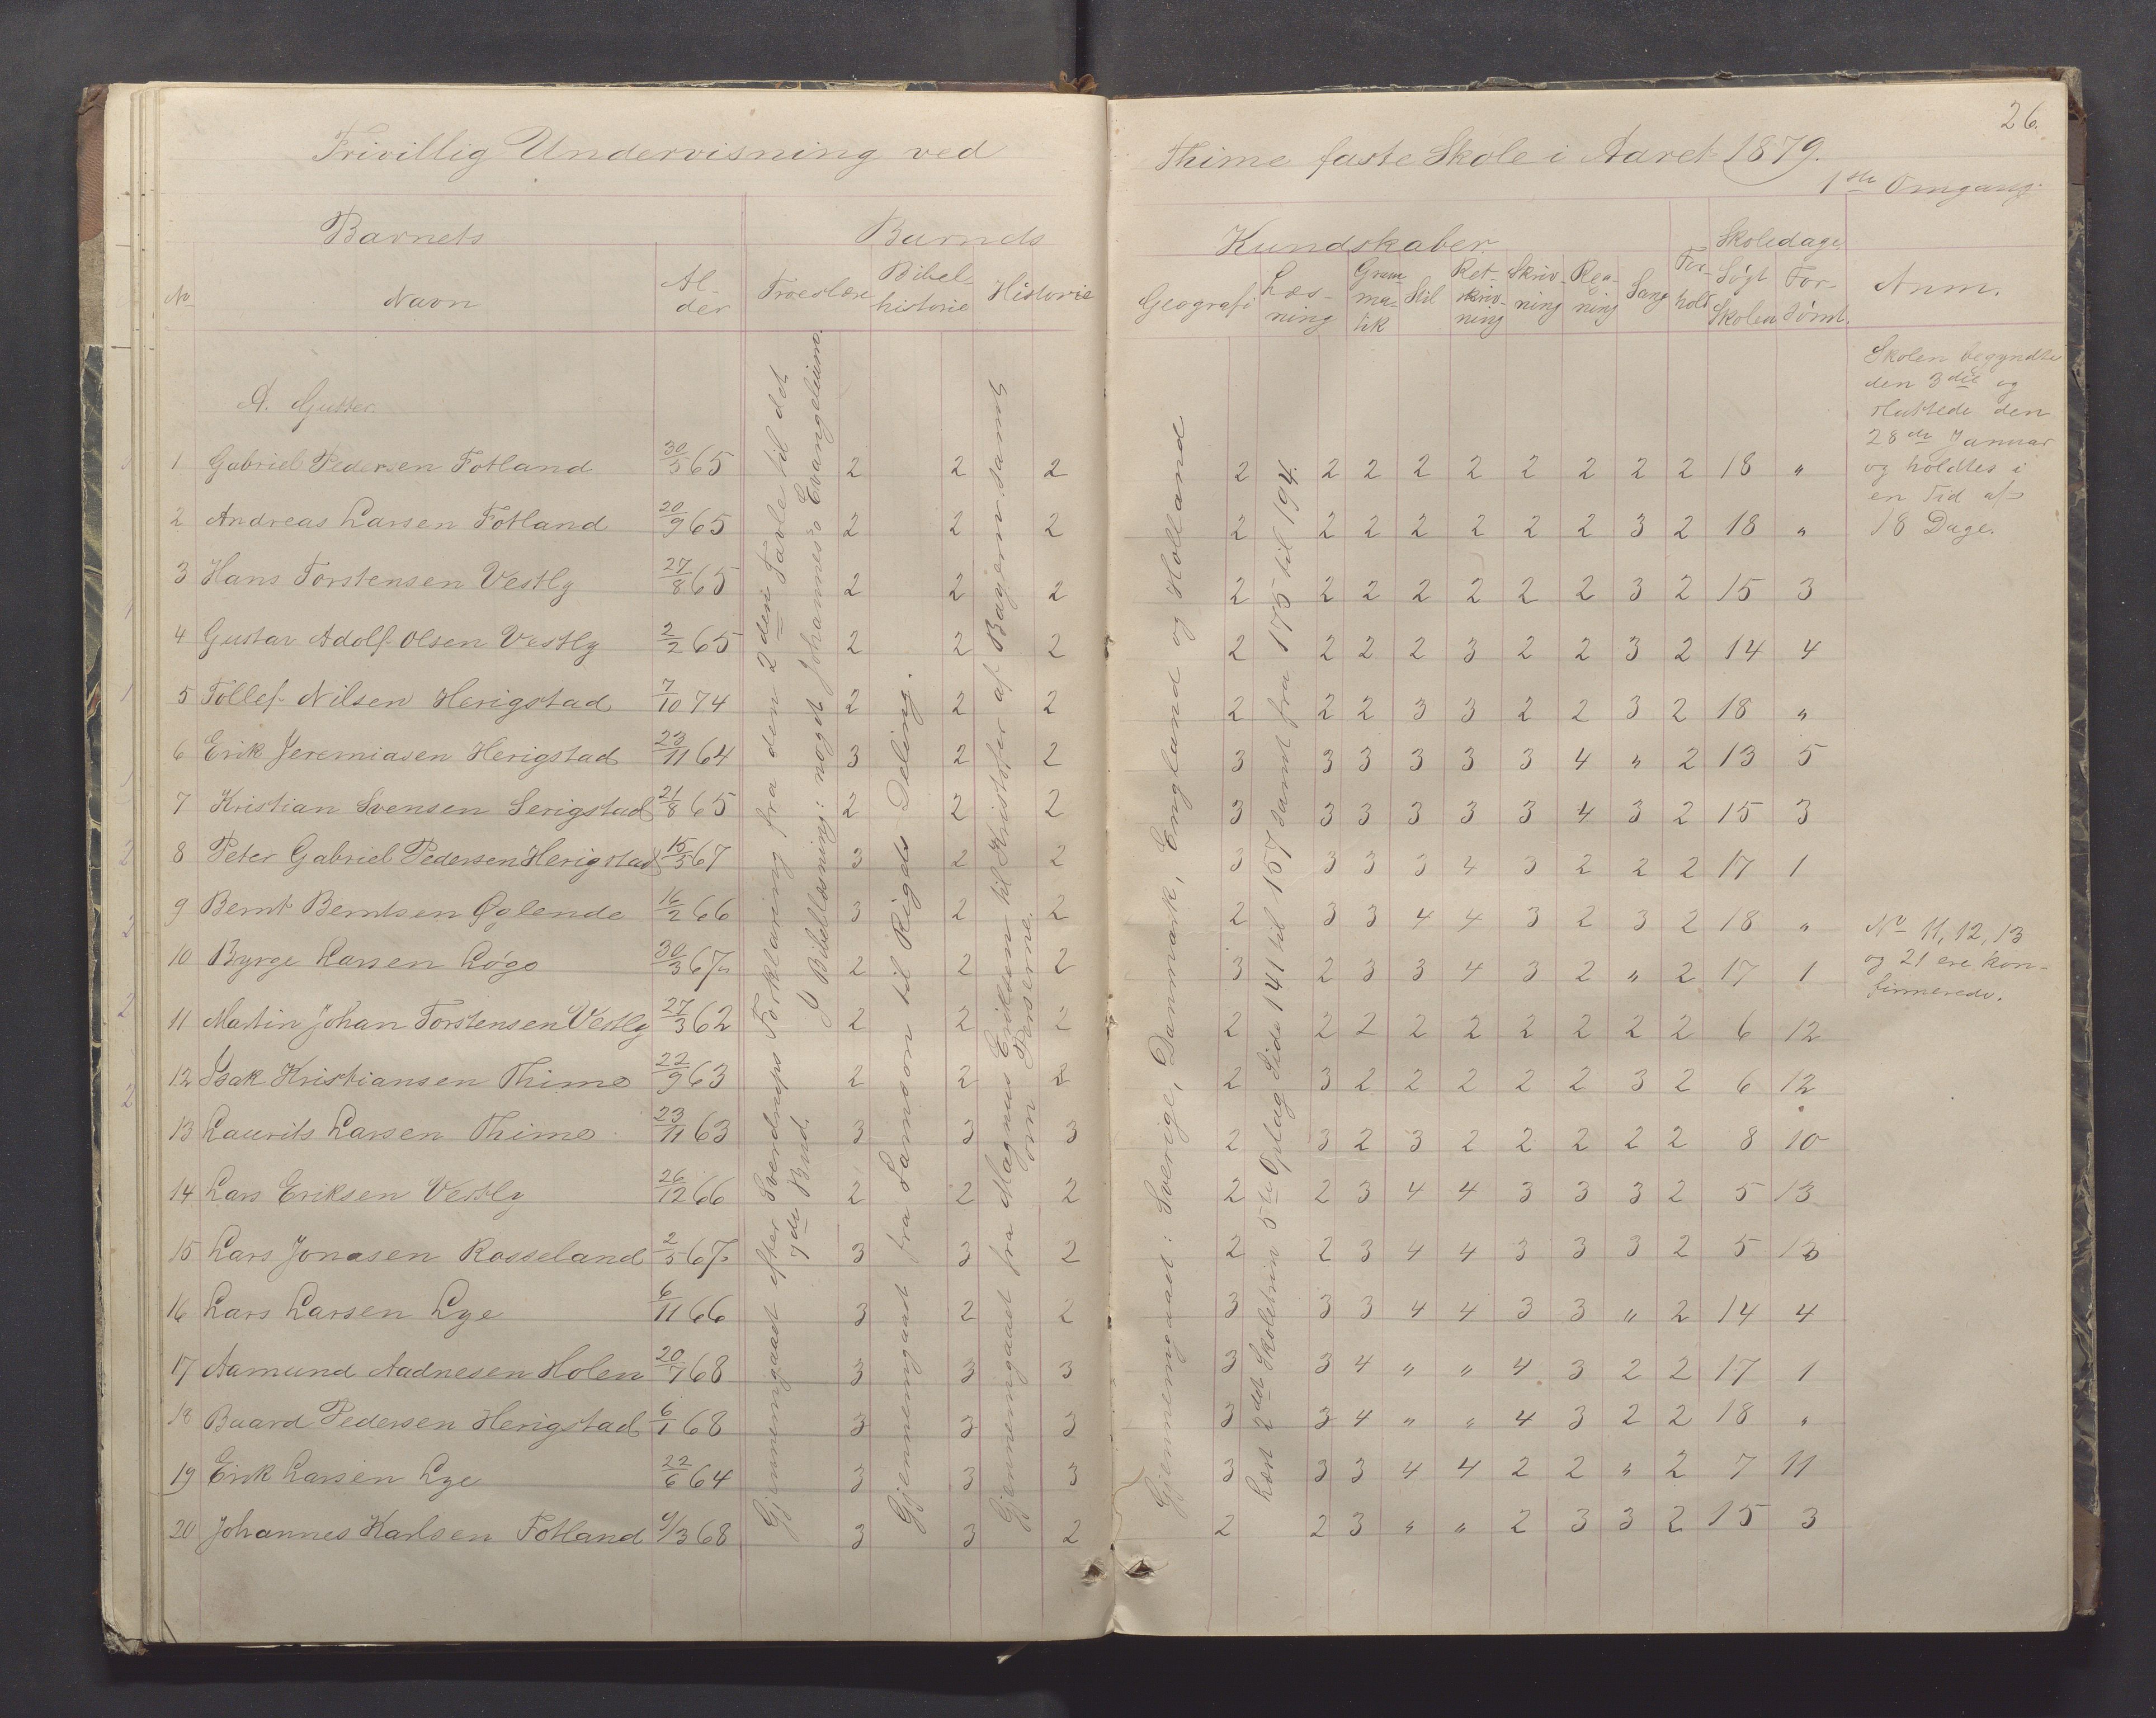 26.
Frivillig Undervisning ved Thime faste Skole i Aaret 1879.
1ste Omgang.
Barnets Barnets Kundskaber Skoledage
No Navn Alder Troeslære Bibelhistorie Historie Geografi Læsning Gramatik Stil Retskrivning Skrivning Regning Sang Forhold Søgt Skolen Forsømt. Anm.
A. Gutter.
1 Gabriel Pedersen Fotland 30/5 65 2 2 2 2 2 2 2 2 2 2 2 2 18 "
2 Andreas Larsen Fotland 20/9 65 2 2 2 2 2 2 2 2 2 2 3 2 18 "
3 Hans Torstensen Vestly 27/8 65 2 2 2 2 2 2 2 2 2 2 3 2 15 3
4 Gustav Adolf Olsen Vestly 2/2 65 2 2 2 2 2 2 2 3 2 2 3 2 14 4
5 Tollef Nilsen Herigstad 7/10 74 2 2 2 2 2 2 3 3 2 2 3 2 18 "
6 Erik Jeremiasen Herigstad 23/11 64 3 2 2 3 3 3 3 3 3 4 " 2 13 5
7 Kristian Svensen Serigstad 21/8 65 2 2 2 3 3 3 3 3 3 4 3 2 15 3
8 Peter Gabriel Pedersen Herigstad 15/5 67 3 2 2 3 3 3 3 4 3 2 2 2 17 1
9 Bernt Berntsen Øglende 16/2 66 3 2 2 2 3 3 4 4 3 2 3 2 18 "
10 Byrge Larsen Løge 30/3 67 2 2 2 3 2 3 3 4 3 2 " 2 17 1
11 Martin Johan Torstensen Vestly 27/3 62 2 2 2 2 2 2 2 2 2 2 2 2 6 12
12 Isak Kristiansen Thime 22/9 63 2 2 2 2 3 2 2 2 2 2 3 2 6 12
13 Laurits Larsen Thime 23/11 63 3 3 3 2 3 2 3 2 2 2 2 2 8 10
14 Lars Eriksen Vestly 26/12 66 2 2 2 2 2 3 4 4 3 3 3 2 5 13
15 Lars Jonasen Rosseland 2/5 67 3 3 2 2 2 3 4 4 3 3 3 2 5 13
16 Lars Larsen Lye 6/11 66 3 2 2 3 3 3 4 4 3 3 " 2 14 4
17 Aamund Aadnesen Holen 20/7 68 3 3 3 3 3 4 " " 4 3 2 2 17 1
18 Baard Pedersen Herigstad 6/1 68 3 3 3 3 3 4 " " 4 3 2 2 18 "
19 Erik Larsen Lye 22/6 64 3 3 3 3 3 3 4 4 2 2 " 2 7 11
20 Johannes Karlsen Fotland 9/3 68 3 3 2 2 2 3 " " 2 3 3 2 15 3
Gjennemgaaet efter Sverdrups Forklaring fra den 2den Tavle til det
7de Bud. I Bibellæsning: noget Johannes's Evangelium.
Gjennemgaaet fra Samson til Rigets Deling.
Gjennemgaaet fra Magnus Eriksøn til Kristofer af Bayern samt
om Perserne.
Gjennemgaaet: Sverige, Danmark, England og Holland
Læst 2det Skoletrin 5te Oplag Side 141 til 157 samt fra 175 til 194.
Skolen begyndte
den 3die og
sluttede den
28de Januar
og holdtes i
en Tid af
18 Dage.
No 11, 12, 13
og 21 ere kon-
firmerede.